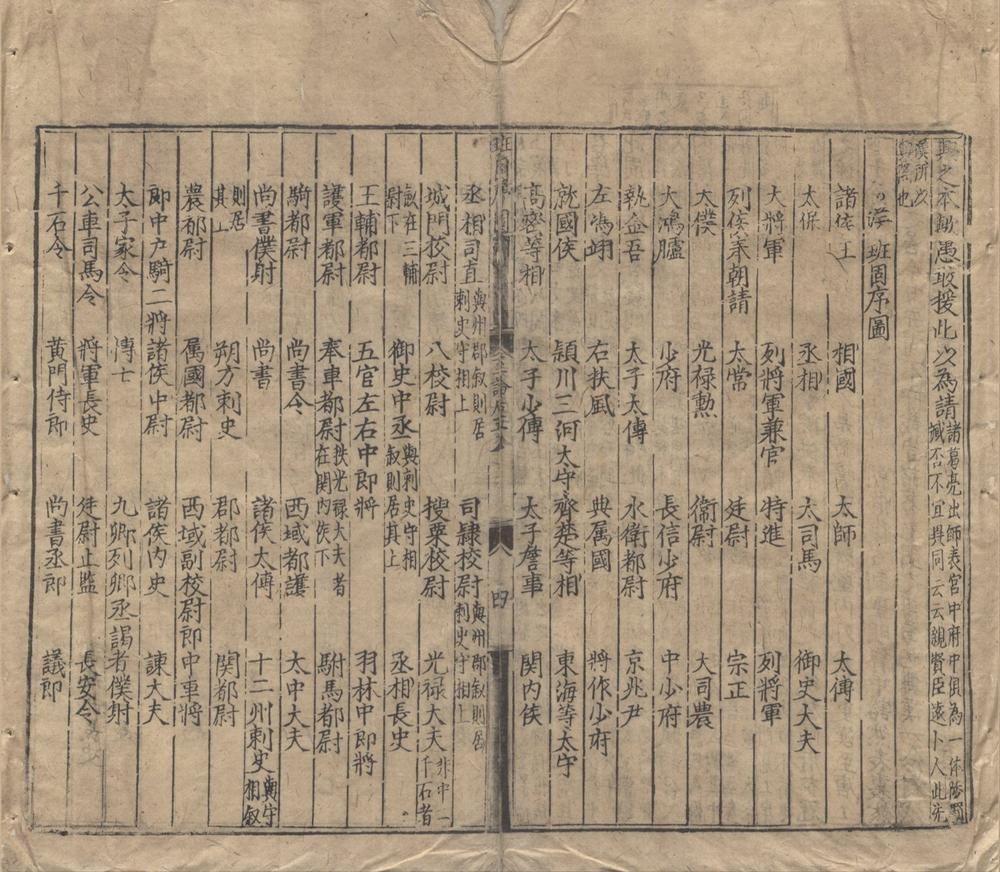 興之本歟愚敢援此以為請諸葛亮出師表宮中府中俱為一体陟罰
臧否不宜異同云云親賢臣遠小人此先
漢所以
興隆也
漢班固序圖
諸侯王 相國 太師 太傅
太保 丞相 大司馬 御史大夫
大將軍 列將軍兼官 特進 列將軍
列侯奉朝請 太常 廷尉 宗正
大僕 光禄勲 衛尉 大司農
大鴻臚 少府 長信少府 中少府
執金吾 太子太傅 水衡都尉 京兆尹
左馮翊 右扶風 典属國 將作少府
就國侯 潁川三河太守 齊楚等相 東海等太守
高密等相 太子少傅 太子詹事 関内侯
四
丞相司直與州郡叙則居
刺史守相上 司隷校尉與州郡叙則居
刺史守相上
城門校尉 八校尉 搜粟校尉 光禄大夫非中二
千石者
叙在三輔
尉下 御史中丞與刺史守相
叙則居其上 丞相長史
王輔都尉 五官左右中郎將 羽林中郎將
護軍都尉 奉車都尉秩光禄大夫者
在関内侯下 駙馬都尉
騎都尉 尚書令 西域都護 太中大夫
尚書僕射 尚書 諸侯太傅 十二州刺史與守
相叙
則居
其上 朔方刺史 郡都尉 関都尉
農都尉 属國都尉 西域副校尉郎中車將
郎中户騎二將 諸侯中尉 諸侯内史 諫大夫
太子家令 傅七 九卿列卿丞謁者僕射
公車司馬令 將軍長史 廷尉止監 長安令
千石令 黄門侍郎 尚書丞郎 議郎